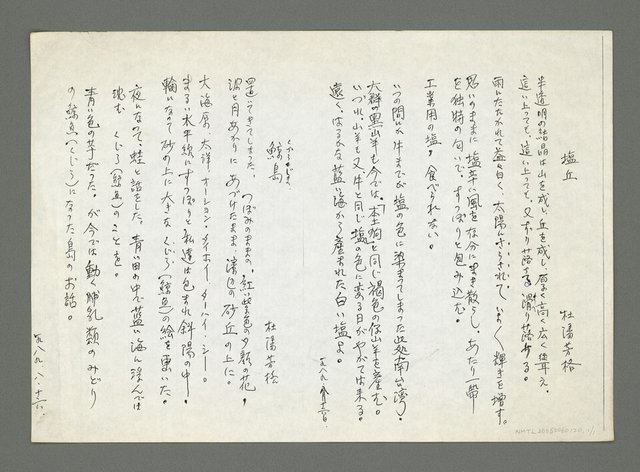 塩丘
杜潘芳格
半透明の結晶は山を成し丘を成し層は高く広く聳え、
這い上っても、這い上っても、又ずり落ち 滑り落ちる。
雨にたたかれて益々白く、太陽にさらされて、いよいよ輝きを増す。
思いのままに塩辛い風を存分にまき散らし、あたり一帯
を独特の匂いで、すっぽりと包み込む。
工業用の塩、食べられない。
いつの間にか牛までが塩の色に染まってしまった此処南台湾、
大群の黒山羊も今では「本土狗」と同じ褐色の仔山羊を産む。
いづれ、山羊も又牛と同じ塩の色に 日がやがて出来る。
遠く、はるかな藍い海から産まれた白い塩よ。
一九八九、八月十六日
くじらじま
鯨島
杜潘芳格
置いてきてしまった、つぼみのままの、紅い紫色の夕顔の花、
涙と月あかりに あづけたまま 濱辺の砂丘の上に。
大海原、太洋 オーション・アイホイ ターハイ・シー。
まるい水平線にすっぽりと私達は包まれ斜陽の中、
輪になって砂の上に大きな くじら(鯨魚)の絵を画いた。
夜になって、蛙と話をした、青い田の中で藍い海に浮んでは
沈む くじら(鯨魚)のことを。
青い色の芋だった。が今では動く哺乳類のみどり
の鯨魚(くじら)になった島のお話。
一九八九、八、十六、
NMTL20050060120, 1/1